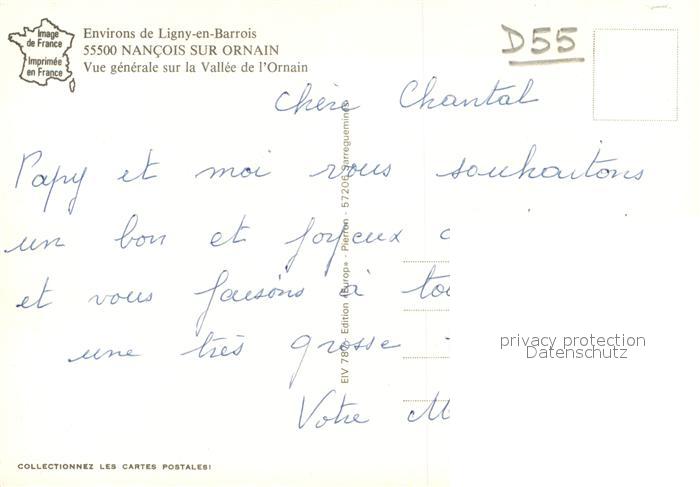 Image
de France
Imprimée
en France
Environs de Ligny-en-Barrois
55500 NANÇOIS SUR ORNAIN
Vue générale sur la Vallée de l'Ornain
D55
Chère Chantal
Papy et moi vous souhaitons
un bon et joyeux
et vous faisons à
une très grosse
Votre
EIV 7806 Edition «Europ» - Pierron - 57206 Sarreguemines
privacy protection
Datenschutz
COLLECTIONNEZ LES CARTES POSTALES!